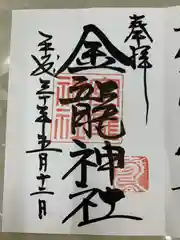 奉拝
金龍神社
平成三十年五月十二日